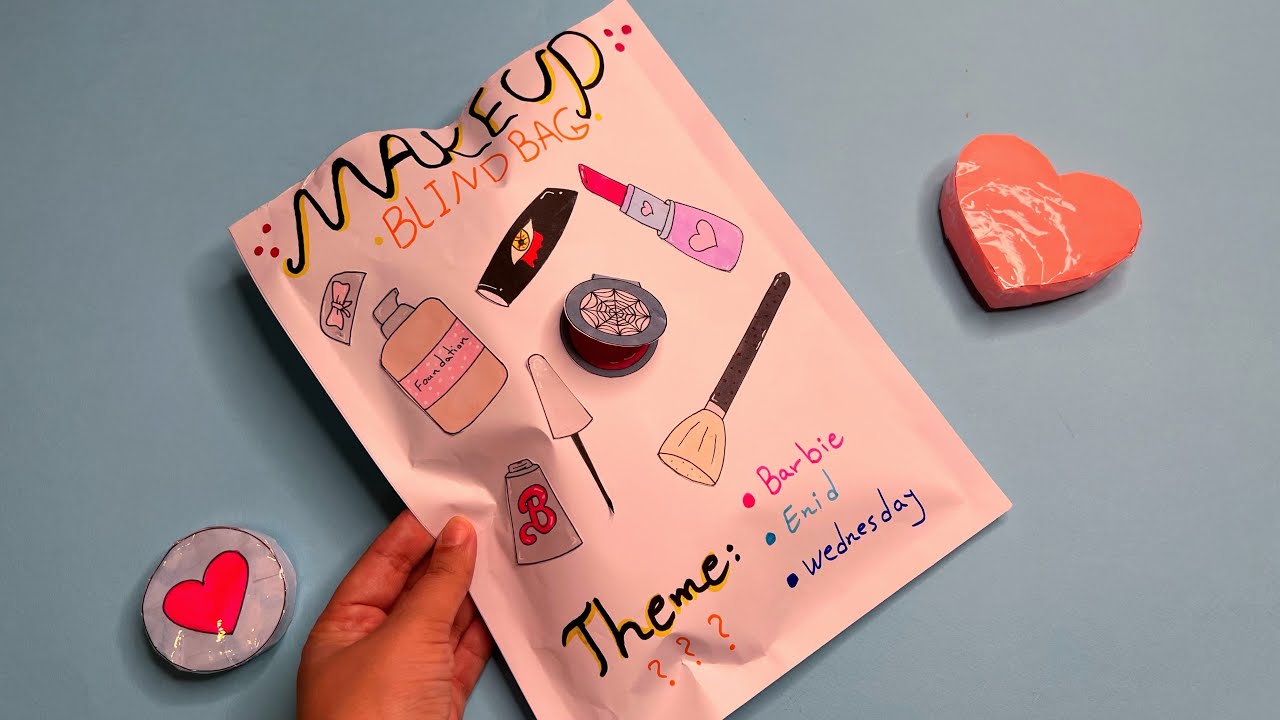 MAKEUP
BLIND BAG
Foundation
B
• Barbie
• Enid
• Wednesday
Theme:
? ? ?